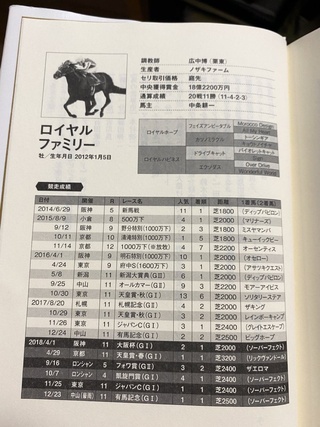 調教師 広中博(栗東)
生産者 ノザキファーム
セリ取引価格 庭先
中央獲得賞金 18億2200万円
通算成績 20戦11勝(11-4-2-3)
馬主 中条耕一
ロイヤル
ファミリー
牡/生年月日 2012年1月5日
ロイヤルホープ
フェイズアンビータブル
Morocco Design
ロイヤルハピネス
ドライブキャット
エクリプス
Over Drive
Wonderful World
競走成績
日付 開催 R レース名 人気 着順 距離 1着馬(2着馬)
2014/6/29 阪神 5 新馬戦 11 1 芝1800 (ディップバビロン)
2015/8/9 小倉 8 500万下 4 1 芝2000 (マリナーズ)
9/12 阪神 9 野分特別(1000万下) 3 2 芝1800 ミスヤマンバ
10/11 京都 10 清滝特別(1000万下) 1 5 芝1800 キュービックビー
11/14 京都 12 1000万下(※放牧) 4 7 芝2200 オーセンティス
2016/4/1 阪神 9 明石特別(1000万下) 10 1 芝2000 (オセロー)
4/24 東京 9 府中S(1600万下) 3 1 芝2000 (アサツキクエスト)
5/6 新潟 11 新潟大賞典(GⅢ) 6 1 芝2000 (ディップバビロン)
9/25 中山 11 オールカマー(GⅡ) 3 9 芝2200 モアーアイビス
10/30 東京 11 天皇賞・秋(GⅠ) 13 6 芝2000 ソリタリーステア
2017/8/20 札幌 11 札幌記念(GⅡ) 4 2 芝2000 ザキング
10/29 東京 11 天皇賞・秋(GⅠ) 3 2 芝2000 レインボーキャンプ
11/26 東京 11 ジャパンC(GⅠ) 2 3 芝2400 (グレイトエスケープ)
12/24 中山 11 有馬記念(GⅠ) 2 2 芝2500 ビッグホープ
2018/4/1 阪神 11 大阪杯(GⅠ) 2 1 芝2000 (ソーパーフェクト)
4/29 京都 11 天皇賞・春(GⅠ) 1 1 芝3200 (リックウォンドール)
9/16 ロンシャン 5 フォワ賞(GⅡ) 2 3 芝2400 ザエロマ
10/7 ロンシャン 4 凱旋門賞(GⅠ) 4 1 芝2400 (ソーパーフェクト)
11/25 東京 11 ジャパンC(GⅠ) 1 1 芝2400 (ソーパーフェクト)
12/23 中山(最終) 11 有馬記念(GⅠ) 1 1 芝2500 (ソーパーフェクト)